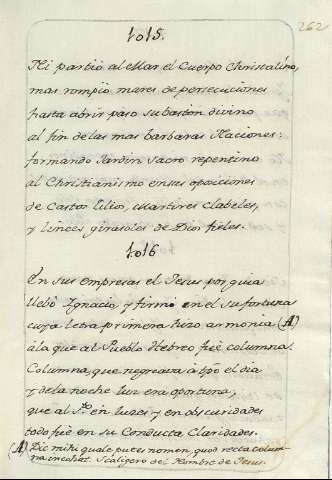 262
1015.
Ni partió al Mar el Cuerpo Christalino,
mas rompió mares de persecuciones
hasta abrir paso su baston divino
al fin de las mas barbaras Naciones:
formando Jardin sacro repentino
al Christianismo en sus oposiciones
de Castos lilios, Martires Clabeles,
y linces girasoles de Dios fieles.
1016
En sus empresas el Jesus por guia
llebó Ignacio, y firmó en el su fortuna
cuya letra primera hizo armonia (A)
à la que al Pueblo Hebreo fué columna.
Columna, que negreava à tpo el dia
y de la noche luz era oportuna,
que al Sto. en luzes y en obscuridades
todo fué en su Conducta Claridades.
(A) Dic mihi quale putes nomen, quod recta colum-
na incohat. Scaligero del Nombre de Jesus.